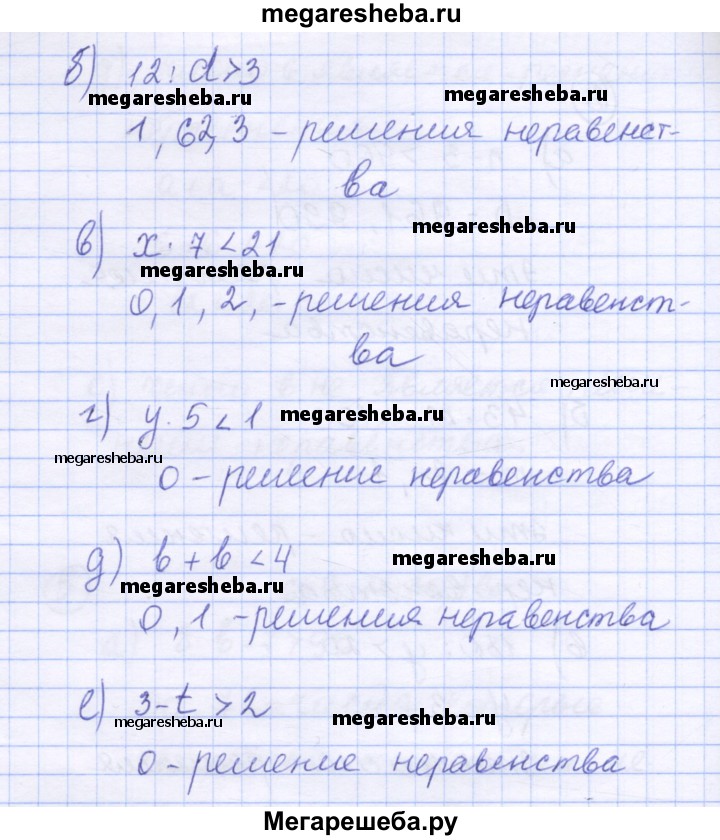 megaresheba.ru
б) 12 : d > 3
megaresheba.ru megaresheba.ru
1, 62, 3 - решения неравенст-
ва
megaresheba.ru
в) x · 7 < 21
megaresheba.ru
0, 1, 2, - решения неравенст-
ва
megaresheba.ru
г) y · 5 < 1 megaresheba.ru
megaresheba.ru
0 - решение неравенства
д) b + b < 4 megaresheba.ru
megaresheba.ru
0, 1 - решения неравенства
е) 3 - t > 2
megaresheba.ru megaresheba.ru
0 - решение неравенства
Мегарешеба.ру